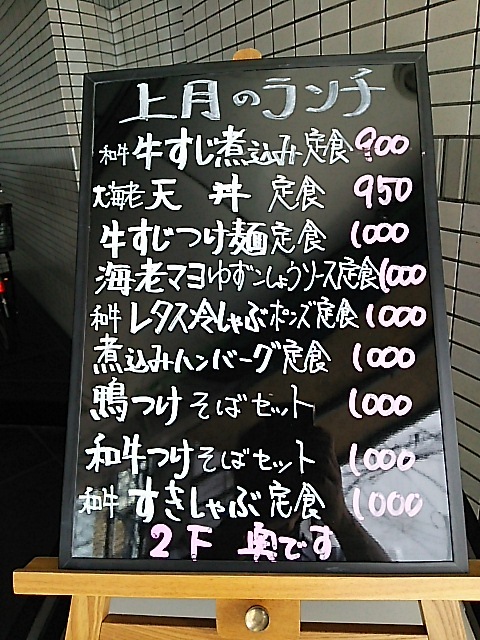 上月のランチ
和牛 牛すじ煮込み定食 900
大海老 天丼 定食 950
牛すじつけ麺定食 1000
海老マヨゆずこしょうソース定食 1000
和牛 レタス冷しゃぶポンズ定食 1000
煮込みハンバーグ定食 1000
鴨つけそばセット 1000
和牛つけそばセット 1000
和牛 すきしゃぶ定食 1000
2F 奥です